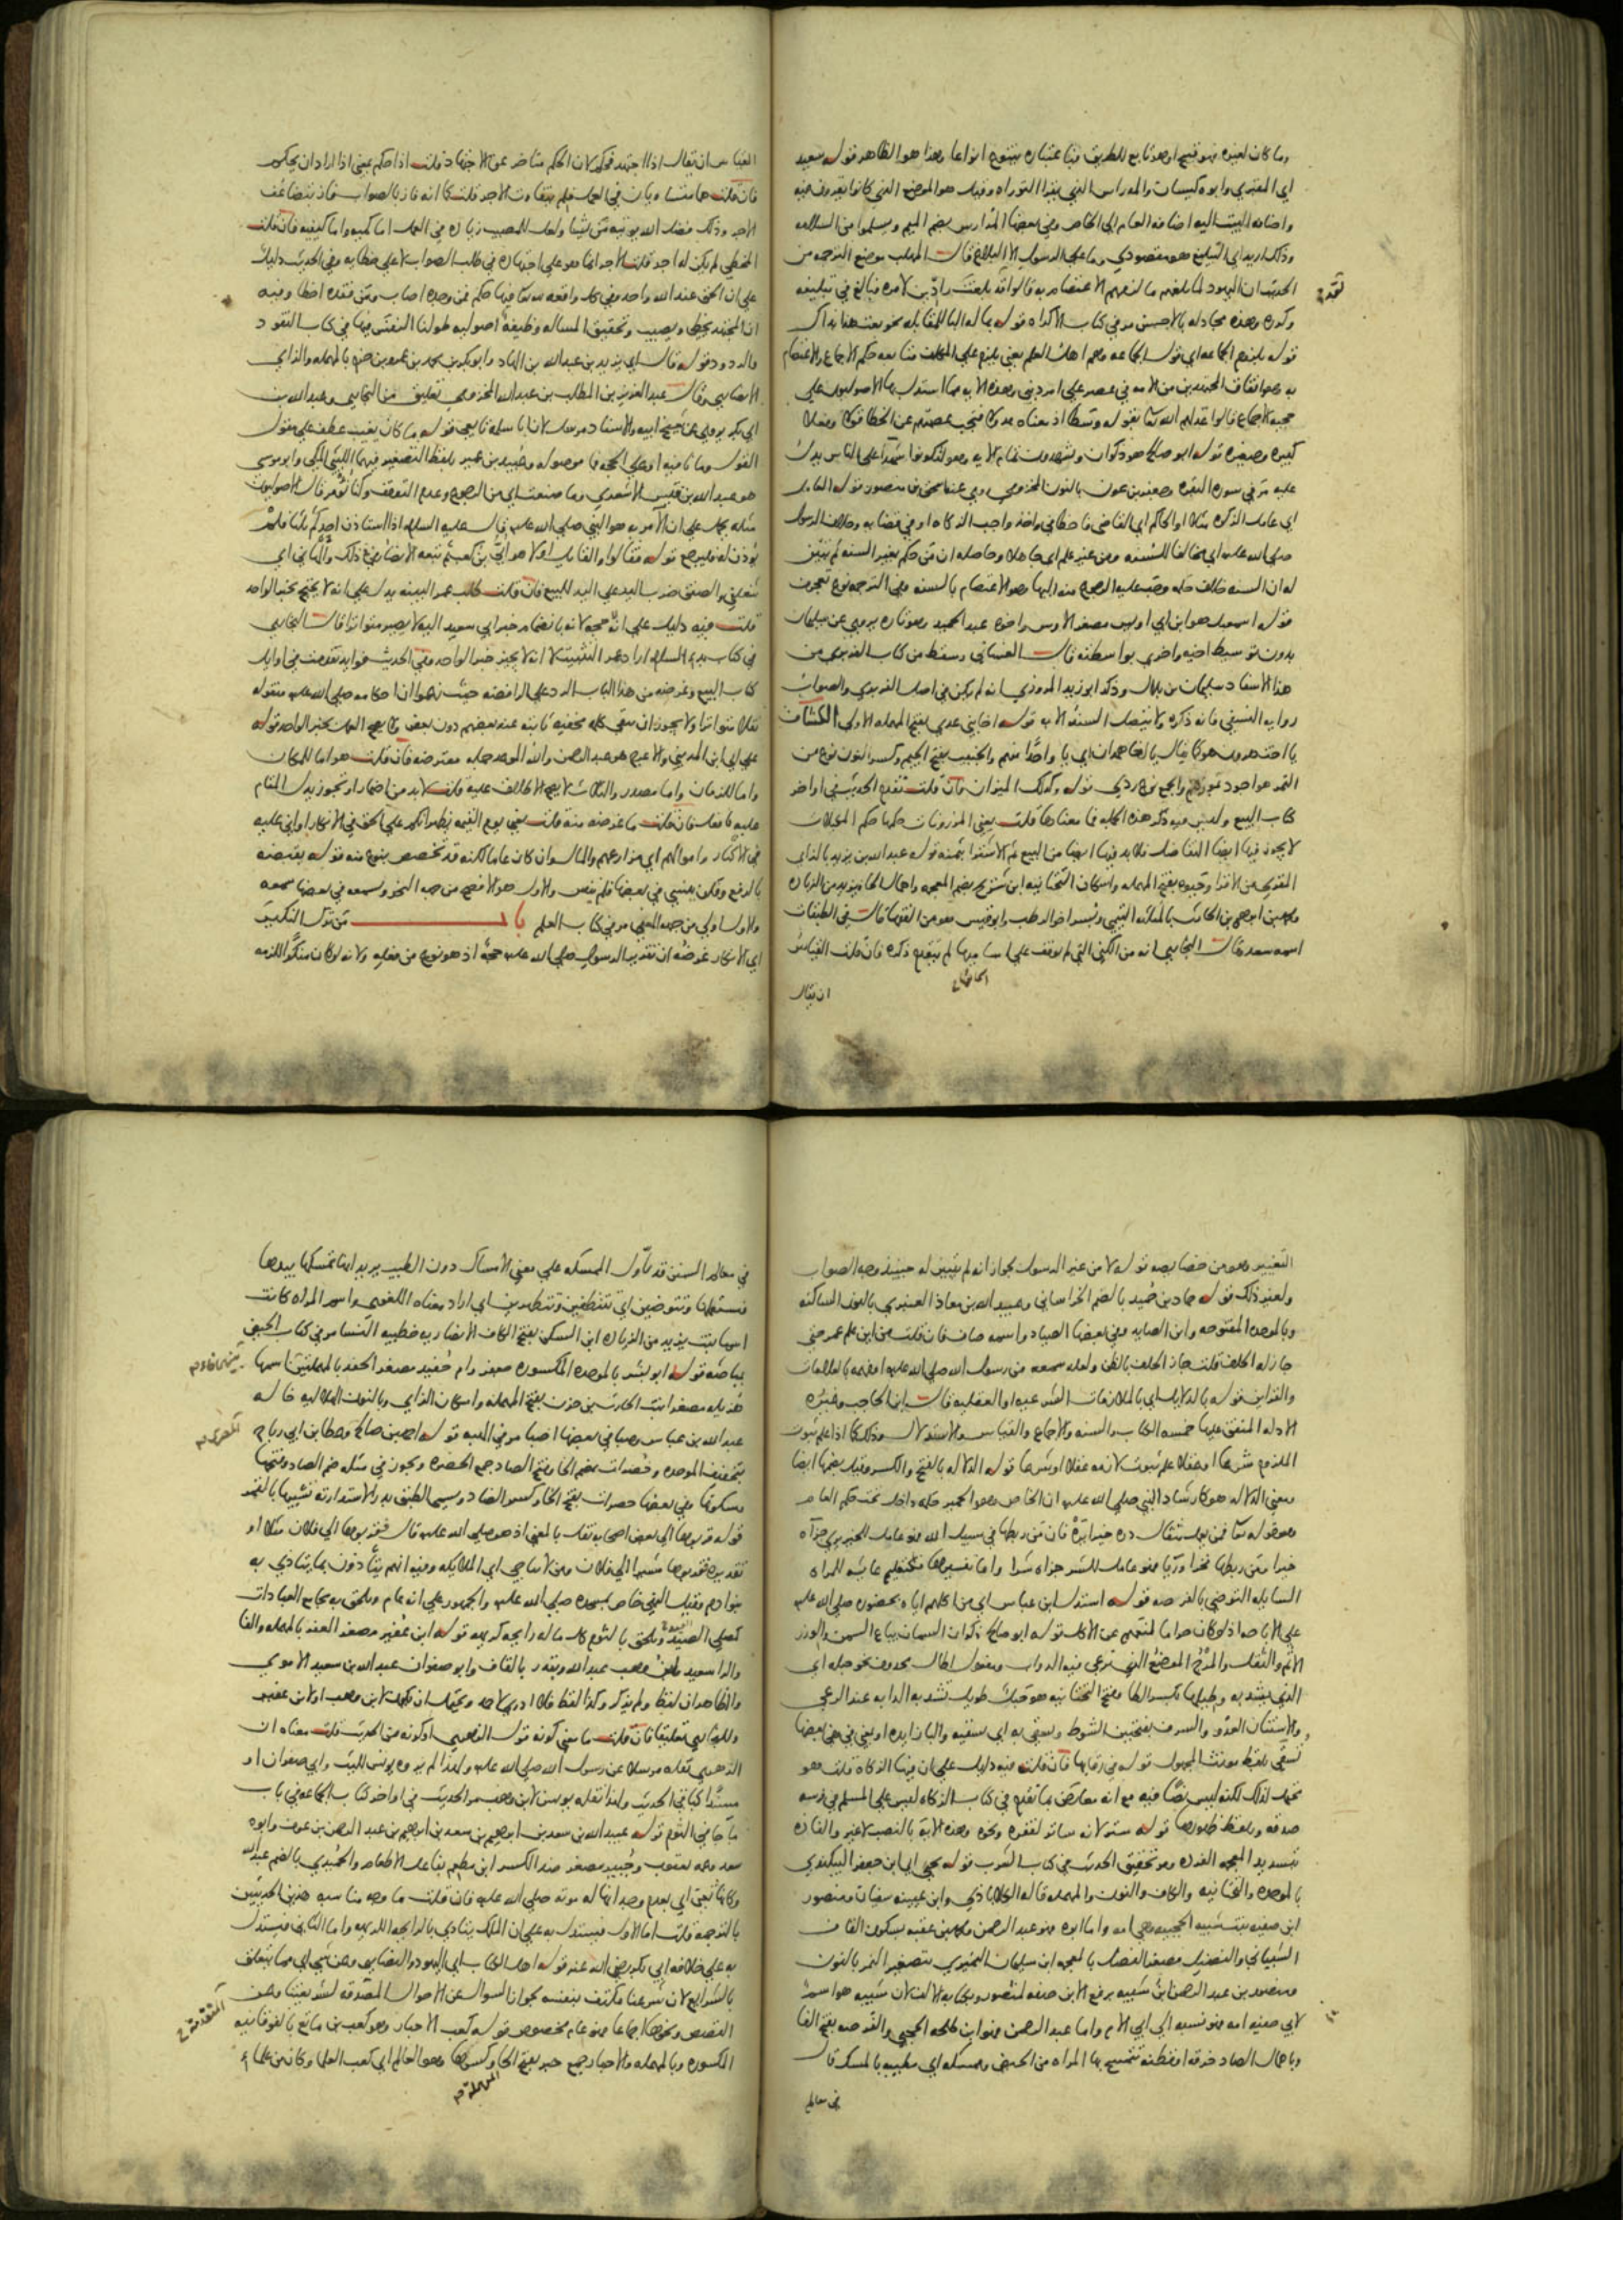 وما كان لغيره فهو قبيح او هو تابع للطريق فباعتباره يتنوع انواعا وهذا هو الظاهر قوله سعيد
اي المقبري وابوه كيسان والمدراس الذي يقرا التوراه وقيل هو الموضع الذي كانوا يقرءون فيه
واضافه البيت اليه اضافه العام الي الخاص وفي بعضها المدارس بضم الميم
وذلك اريد اي التبليغ هو مقصودي وما علي الرسول الا البلاغ قال المهلب موضع الترجمه من
الحديث ان اليهود لما بلغهم ما لزمهم الاعتصام به قالوا قد بلغت رادين لامره فبالغ في تبليغه
وكرره وهذه مجادله بالاحسن مر في كتاب الاكراه قوله بماله البا للمقابله نحو بعت هذا بذاك
قوله بلزوم الجماعه اي قول الجماعه وهم اهل العلم يعني يلزم علي المكلف متابعه حكم الاجماع والاعتصام
به وهو اتفاق المجتهدين من الامه في عصر علي امر ديني وهذه الايه مما استدل بها الاصوليون علي
حجيه الاجماع قالوا عدلهم الله بقوله وسطا اذ معناه عدولا فيجب عصمتهم عن الخطا قولا وفعلا
كبيره وصغيره قوله ابو صالح هو ذكوان وتشهدون تمام الايه وهو لتكونوا شهدا علي الناس يدل
عليه مر في سوره البقره وجعفر بن عون بالنون المخزومي روي عنه اسحق بن منصور قوله العامل
اي عامل الزكاه مثلا او الحاكم اي القاضي فاخطا في واخذ واجب الزكاه او في قضايه وخلاف الرسول
صلي الله عليه اي مخالفا للسنه ومن غير علم اي جاهلا وحاصله ان من حكم بغير السنه ثم تبين
له ان السنه خلاف حكمه وجب عليه الرجوع منه اليها وهو الاعتصام بالسنه وفي الترجمه نوع تعجرف
قوله اسمعيل هو ابن ابي اويس مصغر الاوس واخوه عبد الحميد وهو تاره يروي عن سليمان
بدون توسيط اخيه واخري بواسطته قال الغساني وسقط من كتاب الفربري من
هذا الاسناد سليمان بن بلال وذكر ابو زيد المروزي انه لم يكن في اصل الفربري والصواب
روايه النسفي فانه ذكره ولا يتصل السند الا به قوله اخا بني عدي بفتح المهمله الاولي الكشاف
يا اخت هرون هو كما يقال يا اخا همدان اي يا واحدا منهم والجنيب بفتح الجيم وكسر النون نوع من
التمر هو اجود تمورهم والجمع نوع ردي قوله وكذلك الميزان فان قلت تقدم الحديث في اواخر
كتاب البيع وليس فيه ذكر هذه الكلمه فما معناها قلت يعني الموزونات حكمها حكم المكيلات
لا يجوز فيها ايضا التفاضل فلابد فيها ايضا من البيع ثم الاشترا بثمنه قوله عبد الله بن يزيد بالزاي
المقري من الاقرا وحيوه بفتح المهمله واسكان التحتانيه ابن شريح بضم المعجمه واهمال الحا ويزيد من الزياده
ومحمد بن ابرهيم بن الحارث بالمثلثه التيمي وبسر اخو الرطب وابو قيس هو من الفقها قال في الطبقات
اسمه سعد وقال البخاري انه من الكني التي لم يوقف علي اساميها لم يتقدم ذكره فان قلت القياس
ان يقال
القياس ان يقال اذا اجتهد فحكم لان الحكم متاخر عن الاجتهاد قلت اذا حكم يعني اذا اراد ان يحكم
فان قلت هما متساويان في العمل فلم يتفاوت الاجر قلت كما انه فاز بالصواب فاز بتضاعف
الاجر وذلك فضل الله يوتيه من يشا ولعل للمصيب زياده في العمل اما كميه واما كيفيه فان قلت
المخطي لم يكن له اجر قلت الاجر انما هو علي اجتهاده في طلب الصواب لا علي خطايه وفي الحديث دليل
علي ان الحق عند الله واحد وفي كل واقعه لله فيها حكم فمن وجده اصاب ومن فقده اخطا وفيه
ان المجتهد يخطي ويصيب وتحقيق المساله وظيفه اصوليه طولنا النفس فيها في كتاب النقود
والردود قوله قال اي يزيد بن عبد الله بن الهاد وابو بكر بن محمد بن عمرو بن حزم بالمهمله والزاي
الانصاري وقال عبد العزيز بن المطلب بن عبد الله المخزومي تعليق من البخاري وعبد الله بن
ابي بكر يروي عن شيخ ابيه والاسناد مرسل لان ابا سلمه تابعي قوله ما كان يغيب عطف علي مقول
القول وما نافيه او علي الحجه فما موصوله وعبيد بن عمير بلفظ التصغير فيهما الليثي المكي وابو موسي
هو عبد الله بن قيس الاشعري وما صنعت اي من الرجوع وعدم التوقف وكنا نؤمر قال الاصوليون
مثله يحمل علي ان الآمر به هو النبي صلي الله عليه قال عليه السلام اذا استاذن احدكم ثلثا فلم
يؤذن له فليرجع قوله فقالوا والقايل اولا هو ابي بن كعب ثم تبعه الانصار في ذلك والهاني اي
شغلني والصفق ضرب اليد علي اليد للبيع فان قلت طلب عمر البينه يدل علي انه لا يحتج بخبر الواحد
قلت فيه دليل علي انه حجه لانه بانضمام خبر ابي سعيد اليه لا يصير متواترا قال البخاري
في كتاب بدء السلام اراد عمر التثبت لا انه لا يجيز خبر الواحد وفي الحديث فوايد تقدمت في اوايل
كتاب البيع وغرضه من هذا الباب الرد علي الرافضه حيث زعموا ان احكامه صلي الله عليه منقوله
نقلا متواترا ولا يجوز ان يبقي كلمه مخفيه ثابته عند بعضهم دون بعض ولا يصح العمل بخبر الواحد قوله
علي اي ابن المديني والاعرج هو عبد الرحمن والله الموعد جمله معترضه فان قلت هو اما للمكان
واما للزمان واما مصدر والثلاث لا يصح الاطلاق عليه قلت لابد من اضمار او تجوز يدل المقام
عليه فان قلت ما غرضه منه قلت يعني يوم القيمه يظهر انكم علي الحق في الانكار او اني عليه
في الاكثار واموالهم اي مزارعهم والمال وان كان عاما لكنه قد تخصص بنوع منه قوله يقبضه
بالرفع وفكرت ينسي في بعضها فلم ينس والاول هو الافصح من جهه النحو وسمعه في بعضها سمعه
والاول اولي من جهه المعني مر في كتاب العلم باب من ترك النكير
اي الانكار غرضه ان تقرير الرسول صلي الله عليه حجه اذ هو نوع من فعله ولانه لو كان منكرا للزمه
التغيير وهو من خصايصه قوله لا من غير الرسول لجواز انه لم يتبين له حينيذ وجه الصواب
ولغير ذلك قوله حماد بن حميد بالضم الخراساني وعبيد الله بن معاذ العنبري بالنون الساكنه
وبالموحده المفتوحه وابن الصايد وفي بعضها الصياد واسمه صاف فان قلت من اين علم عمر حتي
جاز له الحلف قلت جاز الحلف بالظن ولعله سمعه من رسول الله صلي الله عليه او فهمه بالعلامات
والقراين قوله بالدلايل اي بالملازمات الشرعيه او العقليه قال ابن الحاجب وغيره
الادله المتفق عليها خمسه الكتاب والسنه والاجماع والقياس والاستدلال وذلك كما اذا علم ثبوت
الملزوم شرعا او عقلا علم ثبوت لازمه عقلا او شرعا قوله الدلاله بالفتح والكسر وقيل بضمها ايضا
ومعني الدلاله هو كارشاد النبي صلي الله عليه ان الخاص وهو الحمير حكمه داخل تحت حكم العام
وهو قوله فمن يعمل مثقال ذره خيرا يره فان من ربطها في سبيل الله فهو عامل للخير يري جزاه
خيرا ومن ربطها فخرا وريا فهو عامل للشر جزاه شرا واما تفسيرها فكتعليم عايشه للمراه
السايله التوضي بالفرصه قوله استدل ابن عباس اي من اكلهم اياه بحضوره صلي الله عليه
علي الاباحه اذ لو كان حراما لمنعهم عن الاكل قوله ابو صالح ذكوان السمان بياع السمن والوزر
الاثم والثقل والمرج الموضع الذي ترعي فيه الدواب ومفعول اطال محذوف نحو حبله اي
الذي يشد به وطيلها بكسر الطا وفتح التحتانيه هو حبل طويل تشد به الدابه عند الرعي
والاستنان العدو والشرف بفتحتين الشوط ويسقي به اي يسقيه والبا زايده او بمعني في وفي بعضها
تسقي بلفظ مونث المجهول قوله في رقابها فان قلت فيه دليل علي ان فيها الزكاه قلت هو
محتمل لذلك لكنه ليس نصا فيه مع انه معارض بما تقدم في كتاب الزكاه ليس علي المسلم في فرسه
صدقه وبلفظ ظهورها قوله ستر لانه ساتر لفقره ونحوه وهذه الاية بالنصب لا غير والفاذه
بتشديد المعجمه الفرده ومر تحقيق الحديث في كتاب الشرب قوله يحيي اي ابن جعفر البيكندي
بالموحده والتحتانيه والكاف والنون والمهمله قاله الكلاباذي وابن عيينه سفيان ومنصور
ابن صفيه بنت شيبه الحجبيه وهي امه واما ابوه فهو عبد الرحمن ومحمد بن عقبه بسكون القاف
الشيباني والفضيل مصغر الفضل بالمعجمه ابن سليمان النميري بتصغير النمر بالنون
ومنصور بن عبد الرحمن ابن شيبه برفع الابن صفه لمنصور ويكتب بالالف لان شيبه هو اسم
لابي صفيه امه فهو نسبه الي ابي الام واما عبد الرحمن فهو ابن طلحه الحجبي والفرصه بفتح الفا
وباهمال الصاد خرقه او قطنه تتمسح بها المراه من الحيض وممسكه اي مطيبه بالمسك قال
في معالم
في معالم السنن قد تأول الممسكه علي معني الامساك دون الطيب يريد انها تمسكها بيدها
فتستعملها وتتوضين اي تتنظفين وتتطهرين اي اراد معناه اللغوي واسم المراه كانت
اسما بنت يزيد من الزياده ابن السكن بفتح الكاف الانصاريه خطيبه النسا مر في كتاب الحيض
بمباحثه قوله ابو بشر بالموحده المكسوره جعفر وام حفيد مصغر الحفد بالمهملتين اسمها
هزيله مصغرا بنت الحارث بن حزن بفتح المهمله واسكان الزاي وبالنون الهلاليه خاله
عبد الله بن عباس وضبا في بعضها اضبا مر في الهبه قوله احمد بن صالح وعطا بن ابي رباح
بتخفيف الموحده وخضرات بضم الخا وفتح الضاد جمع الخضره ويجوز في مثله ضم الضاد وفتحها
وسكونها وفي بعضها خضرات بفتح الخا وكسر الضاد وسمي الطبق بدرا لاستدارته تشبيها بالقمر
قوله قربوها الي بعض اصحابه نقل بالمعني اذ هو صلي الله عليه قال قربوها الي فلان مثلا او
تقديره قربوها مشيرا الي فلان ومن لا تناجي اي الملايكه وفيه انهم يتأذون بما يتاذي به
بنو ادم وقيل النهي خاص بمسجده صلي الله عليه والجمهور علي انه عام ويلحق به مجامع العبادات
كمصلي العيد ويلحق بالثوم كل ما له رايحه كريهه قوله ابن عفير مصغر العفر بالمهمله والفا
والرا سعيد وابن وهب عبد الله وبقدر بالقاف وابو صفوان عبد الله بن سعيد الاموي
والظاهر ان لفظ ولم يذكر وكذا لفظ فلا ادري لاحمد ويحتمل ان يكون لابن وهب او لابن عفير
وللبخاري تعليقا فان قلت ما معني كونه قول الزهري او كونه من الحديث قلت معناه ان
الزهري نقله مرسلا عن رسول الله صلي الله عليه ولهذا لم يروه يونس لليث وابي صفوان او
مسندا كباقي الحديث ولهذا نقله يونس لابن وهب مر الحديث في اواخر كتاب الجماعه في باب
ما جا في الثوم قوله عبيد الله بن سعد بن ابرهيم بن سعد بن ابرهيم بن عبد الرحمن بن عوف وابوه
سعد وعمه يعقوب وجبير مصغر ضد الكسر ابن مطعم بفاعل الاطعام والحميدي بالضم عبد الله
وكانها تعني اي بعدم وجدانها له موته صلي الله عليه فان قلت ما وجه مناسبه هذين الحديثين
بالترجمه قلت اما الاول فيستدل به علي ان الملك يتاذي بالرايحه الكريهه واما الثاني فيستدل
به علي خلافه ابي بكر رضي الله عنه قوله اهل الكتاب اي اليهود والنصاري وعن شي اي مما يتعلق
بالشرايع لان شرعنا مكتف بنفسه لجواز السوال عن الاحوال المصدقه لشريعتنا وعن
القصص ونحوها اجماعا فهو عام مخصوص قوله كعب الاحبار وهو كعب بن ماتع بالفوقانيه
المكسوره وبالمهمله والاحبار جمع حبر بفتح الحا وكسرها وهو العالم اي كعب العلما وكان من علما